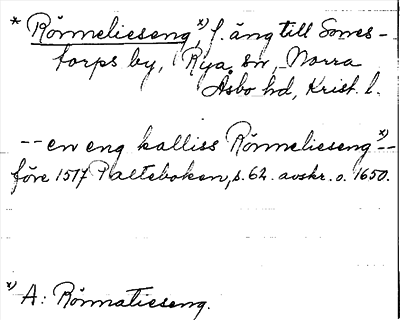 * Rönnelieseng x), f. äng till Sones-
torps by, Rya sn, Norra
Åsbo hd, Krist. l.
-- en eng kalliss Rönnelieseng x) --
före 1517 Palteboken, s. 62. avskr. o. 1650.
x) A: Rönnatieseng.